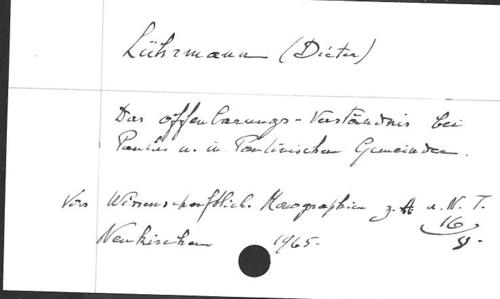 Lührmann (Dieter)
Das offenbarungs-Verständnis bei
Paulus u. in Paulinischen Gemeinden.
Wissenschaftlich. Monographien z. A u. N. T.
16
Neukirchen 1965.